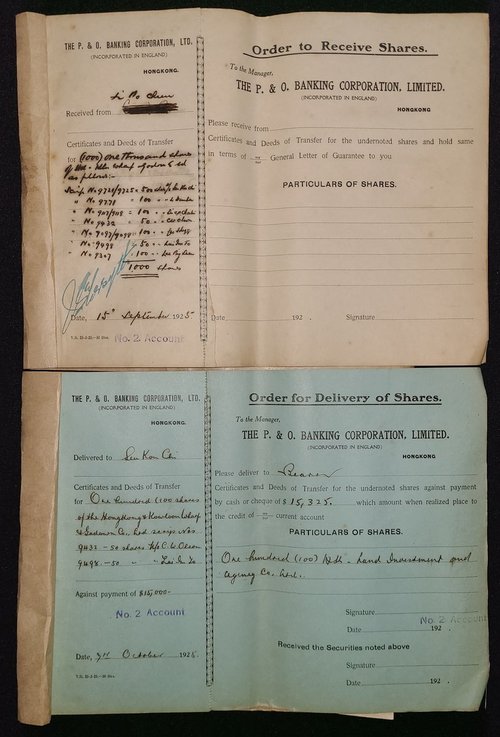 THE P. & O. BANKING CORPORATION, LTD.
(INCORPORATED IN ENGLAND)
HONGKONG.
Received from
Certificates and Deeds of Transfer
for (1000) one thousand shares
of Hk. Kln Wharf Godown & Ltd
as follows:-
Scrip No 9724/9725 = 500
" No 9771 = 100
" No 907/908 = 100
" No 9432 = 50
" No 9097/9098 = 100
" No 9498 = 50
" No 9207 = 100
1000 shares
Date, 15th September 1925
No. 2 Account
Order to Receive Shares.
To the Manager,
THE P. & O. BANKING CORPORATION, LIMITED.
(INCORPORATED IN ENGLAND)
HONGKONG
Please receive from
Certificates and Deeds of Transfer for the undernoted shares and hold same
in terms of my/our General Letter of Guarantee to you
PARTICULARS OF SHARES.
Date 192 . Signature
THE P. & O. BANKING CORPORATION, LTD.
(INCORPORATED IN ENGLAND)
HONGKONG.
Delivered to
Certificates and Deeds of Transfer
for One hundred (100) shares
of the Hongkong & Kowloon Wharf
& Godown Co., Ltd scrips Nos
9432 - 50 shares
9498 - 50 "
Against payment of $15,000-
No. 2 Account
Date, October 1925
Order for Delivery of Shares.
To the Manager,
THE P. & O. BANKING CORPORATION, LIMITED.
(INCORPORATED IN ENGLAND)
HONGKONG.
Please deliver to Bearer
Certificates and Deeds of Transfer for the undernoted shares against payment
by cash or cheque of $15,325. which amount when realized place to
the credit of my/our current account
PARTICULARS OF SHARES.
One hundred (100) Hk. Land Investment and
Agency Co. Ltd.
Signature
No. 2 Account
Date 192 .
Received the Securities noted above
Signature
Date 192 .